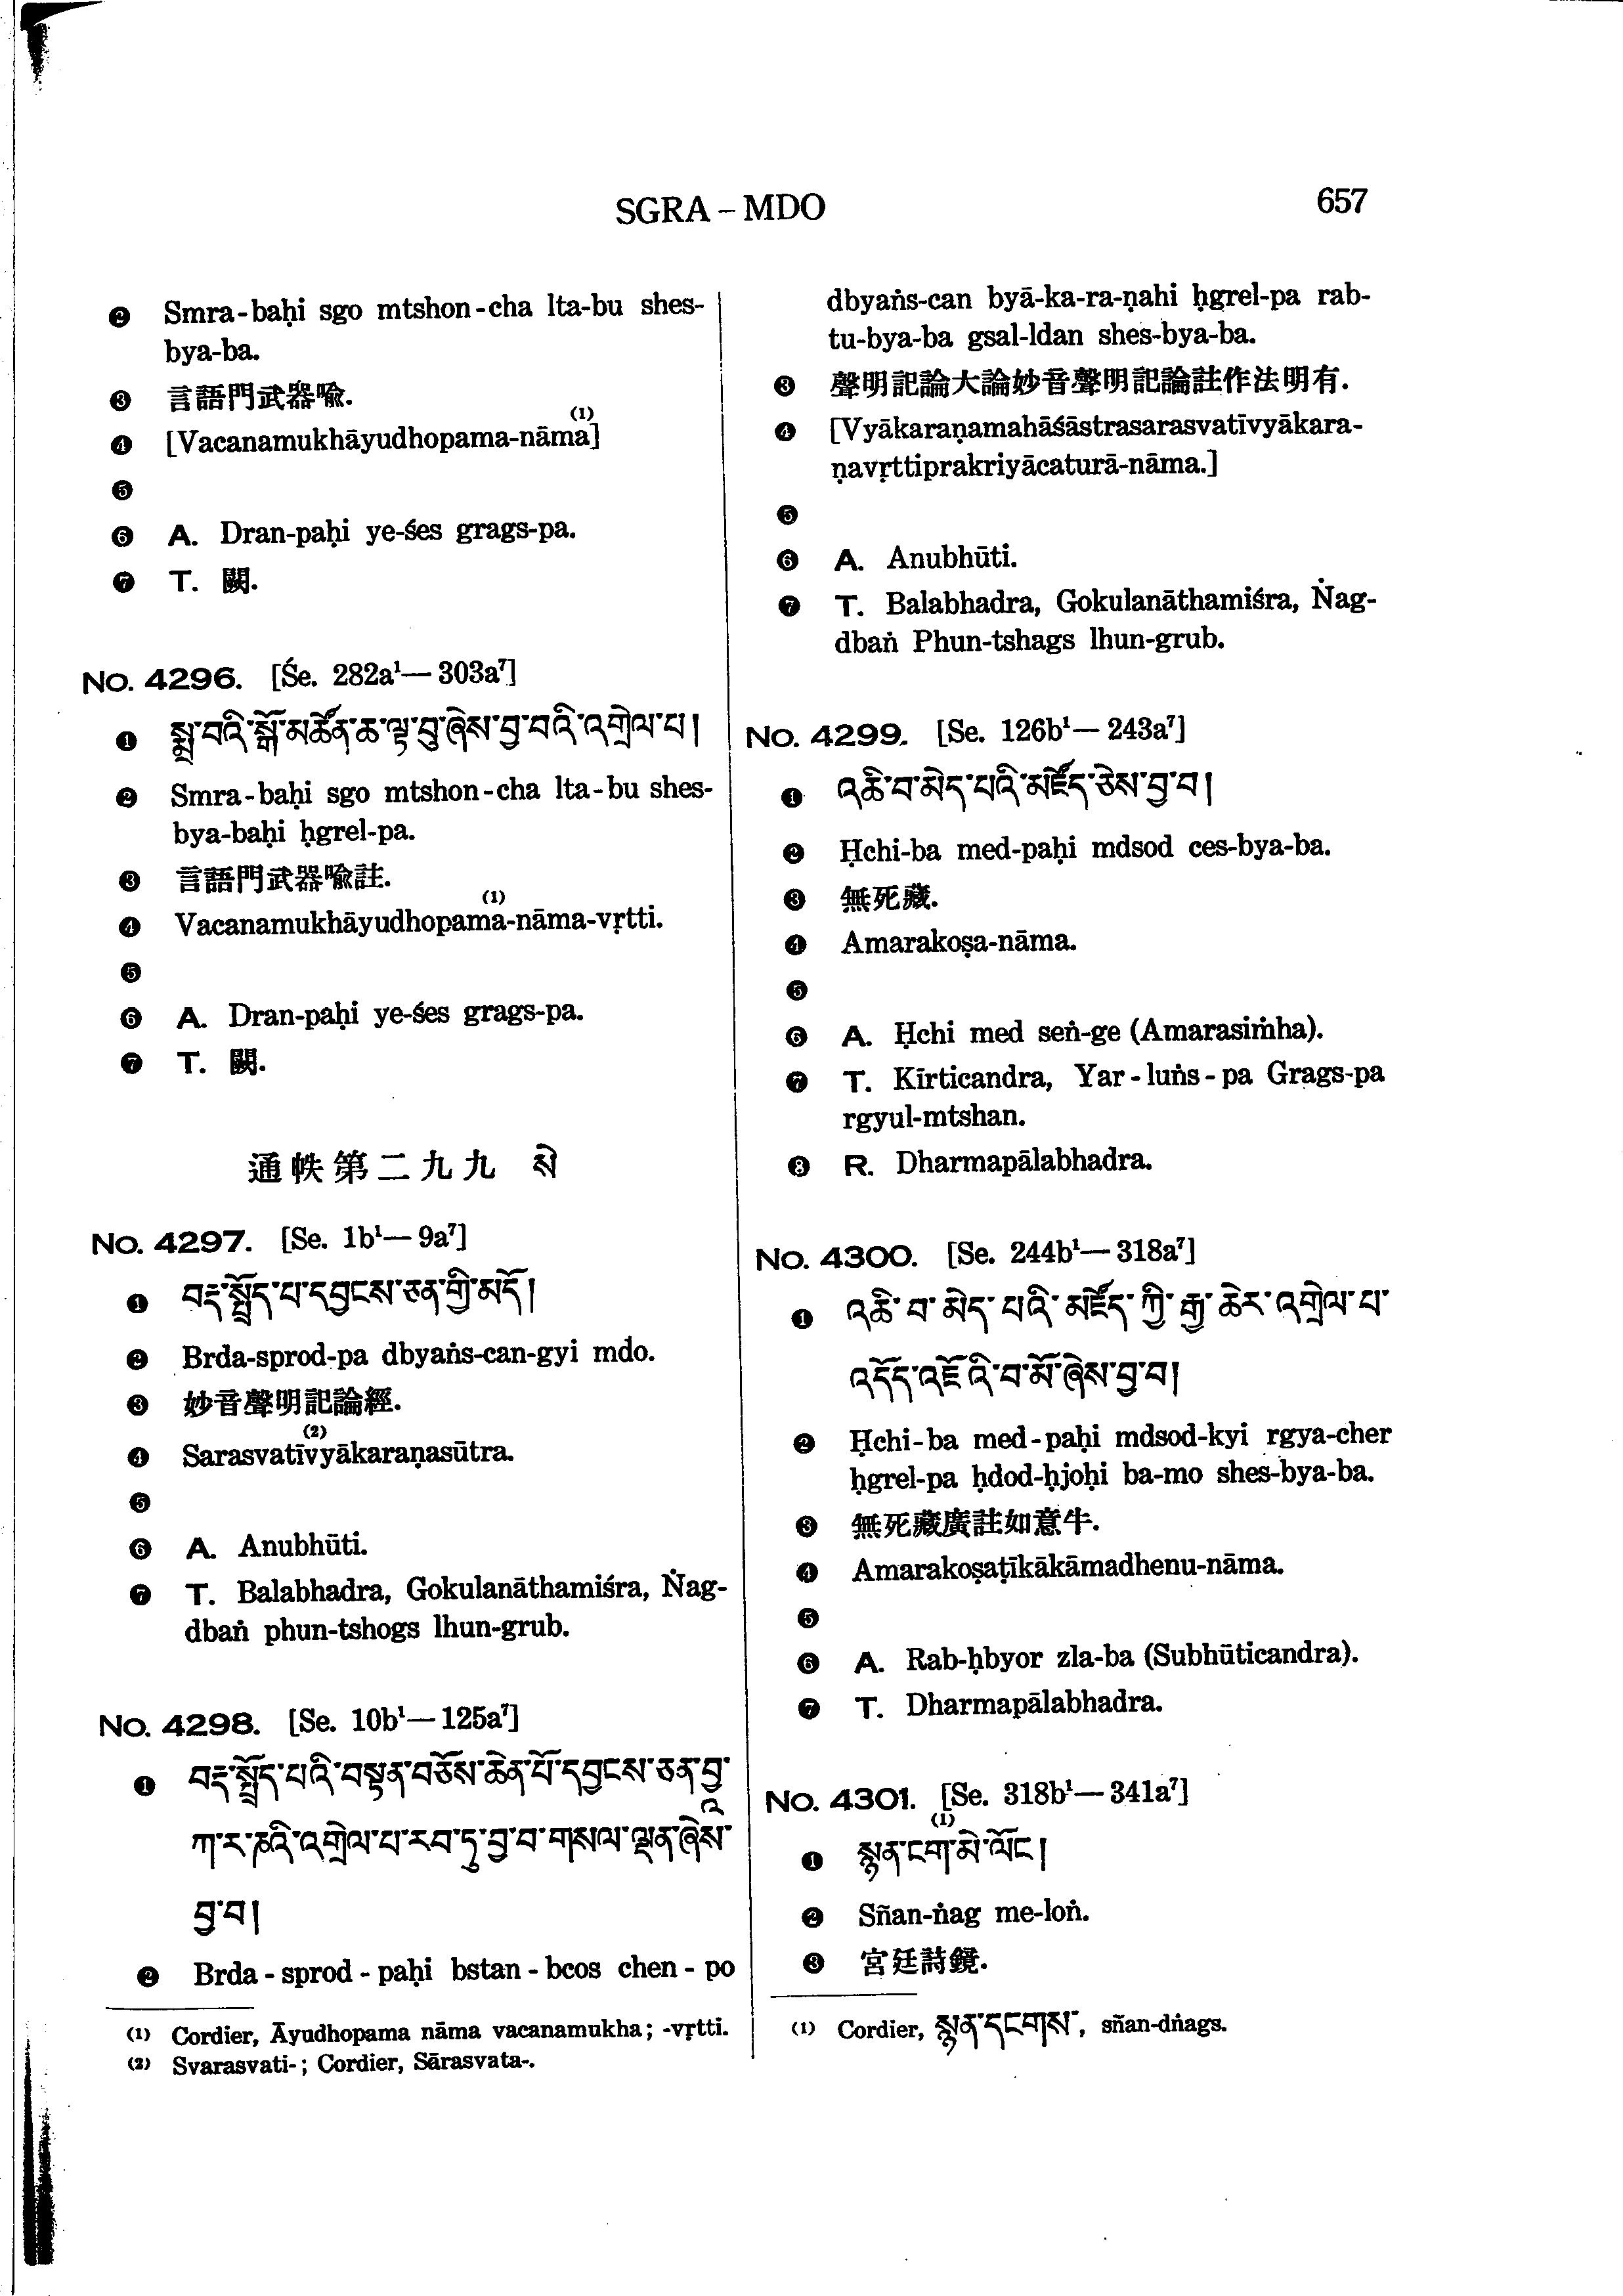 SGRA – MDO
657
❷ Smra-baḥi sgo mtshon-cha lta-bu shes-
bya-ba.
❸ 言語門武器喩.
❹ [Vacanamukhāyudhopama-nāma]⁽¹⁾
❺
❻ A. Dran-paḥi ye-śes grags-pa.
❼ T. 闕.
No. 4296. [Śe. 282a¹—303a⁷]
❶ སྨྲ་བའི་སྒོ་མཚོན་ཆ་ལྟ་བུ་ཞེས་བྱ་བའི་འགྲེལ་པ།
❷ Smra-baḥi sgo mtshon-cha lta-bu shes-
bya-baḥi ḥgrel-pa.
❸ 言語門武器喩註.
❹ Vacanamukhāyudhopama⁽¹⁾-nāma-vṛtti.
❺
❻ A. Dran-paḥi ye-śes grags-pa.
❼ T. 闕.
通帙第二九九 སེ
No. 4297. [Se. 1b¹—9a⁷]
❶ བརྡ་སྤྲོད་པ་དབྱངས་ཅན་གྱི་མདོ།
❷ Brda-sprod-pa dbyaṅs-can-gyi mdo.
❸ 妙音聲明記論經.
❹ Sarasvatīvyākaraṇasūtra.⁽²⁾
❺
❻ A. Anubhūti.
❼ T. Balabhadra, Gokulanāthamiśra, Ṅag-
dbaṅ phun-tshogs lhun-grub.
No. 4298. [Se. 10b¹—125a⁷]
❶ བརྡ་སྤྲོད་པའི་བསྟན་བཅོས་ཆེན་པོ་དབྱངས་ཅན་བྱཱ་
ཀ་ར་ཎའི་འགྲེལ་པ་རབ་ཏུ་བྱ་བ་གསལ་ལྡན་ཞེས་
བྱ་བ།
❷ Brda-sprod-paḥi bstan-bcos chen-po
(1) Cordier, Āyudhopama nāma vacanamukha; -vṛtti.
(2) Svarasvati-; Cordier, Sārasvata-.
dbyaṅs-can byā-ka-ra-ṇahi ḥgrel-pa rab-
tu-bya-ba gsal-ldan shes-bya-ba.
❸ 聲明記論大論妙音聲明記論註作法明有.
❹ [Vyākaraṇamahāśāstrasarasvatīvyākara-
ṇavṛttiprakriyācaturā-nāma.]
❺
❻ A. Anubhūti.
❼ T. Balabhadra, Gokulanāthamiśra, Ṅag-
dbaṅ Phun-tshags lhun-grub.
No. 4299. [Se. 126b¹—243a⁷]
❶ འཆི་བ་མེད་པའི་མཛོད་ཅེས་བྱ་བ།
❷ Ḥchi-ba med-paḥi mdsod ces-bya-ba.
❸ 無死藏.
❹ Amarakoṣa-nāma.
❺
❻ A. Ḥchi med seṅ-ge (Amarasiṁha).
❼ T. Kīrticandra, Yar-luṅs-pa Grags-pa
rgyul-mtshan.
❽ R. Dharmapālabhadra.
No. 4300. [Se. 244b¹—318a⁷]
❶ འཆི་བ་མེད་པའི་མཛོད་ཀྱི་རྒྱ་ཆེར་འགྲེལ་པ་
འདོད་འཇོ་འི་བ་མོ་ཞེས་བྱ་བ།
❷ Ḥchi-ba med-paḥi mdsod-kyi rgya-cher
ḥgrel-pa ḥdod-ḥjoḥi ba-mo shes-bya-ba.
❸ 無死藏廣註如意牛.
❹ Amarakoṣaṭīkākāmadhenu-nāma.
❺
❻ A. Rab-ḥbyor zla-ba (Subhūticandra).
❼ T. Dharmapālabhadra.
No. 4301. [Se. 318b¹—341a⁷]
❶ སྙན་ངག་མེ་ལོང།⁽¹⁾
❷ Sñan-ṅag me-loṅ.
❸ 宮廷詩鏡.
(1) Cordier, སྙན་དངགས་, sñan-dṅags.